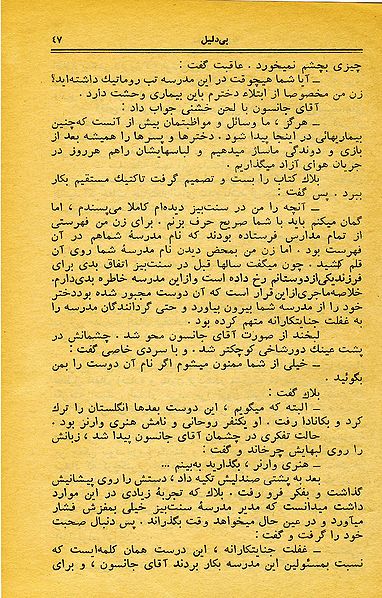 بی‌دلیل ۴۷
چیزی بچشم نمیخورد . عاقبت گفت :
ــ آیا شما هیچوقت در این مدرسه تب روماتیک داشته‌اید؟
زن من مخصوصا از ابتلاء دخترم باین بیماری وحشت دارد .
آقای جانسون با لحن خشنی جواب داد :
ــ هرگز ، ما وسائل و مواظبتمان بیش از آنست که‌چنین
بیماریهائی در اینجا پیدا شود . دخترها و پسرها را همیشه بعد از
بازی و دوندگی ماساژ میدهیم و لباسهایشان راهم هرروز در
جریان هوای آزاد میگذاریم .
بلاک کتاب را بست و تصمیم گرفت تاکتیک مستقیم بکار
ببرد . پس گفت :
ــ آنچه را من در سنت‌بیز دیده‌ام کاملا می‌پسندم ، اما
گمان میکنم باید با شما صریح حرف بزنم . برای زن من فهرستی
از تمام مدارس فرستاده بودند که نام مدرسهٔ شماهم در آن
فهرست بود . اما زن من بمحض دیدن نام مدرسهٔ شما روی آن
قلم کشید . چون میگفت سالها قبل در سنت‌بیز اتفاق بدی برای
فرزندیکی‌ازدوستانم رخ داده است وازاین مدرسه خاطره بدی‌دارم.
خلاصه‌ماجری‌ازاین‌قرار است که آن دوست مجبور شده بوددختر
خود را از مدرسه شما بیرون بیاورد و حتی گردانندگان مدرسه را
به غفلت جنایتکارانه متهم کرده بود .
لبخند از صورت آقای جانسون محو شد . چشمانش در
پشت عینک دورشاخی کوچکتر شد . و با سردی خاصی گفت :
ــ خیلی از شما ممنون میشوم اگر نام آن دوست را بمن
بگوئید .
بلاک گفت :
ــ البته که میگویم ، این دوست بعدها انگلستان را ترک
کرد و بکانادا رفت . او یکنفر روحانی و نامش هنری وارنر بود .
حالت تفکری در چشمان آقای جانسون پیدا شد ، زبانش
را روی لبهایش چرخاند و گفت :
ــ هنری وارنر ، بگذارید به‌بینم ...
بعد به پشتی صندلیش تکیه داد ، دستش را روی پیشانیش
گذاشت و بفکر فرو رفت . بلاک که تجربهٔ زیادی در این موارد
داشت میدانست که مدیر مدرسهٔ سنت‌بیز خیلی بمغزش فشار
میآورد و در عین حال میخواهد وقت بگذراند . پس دنبال صحبت
خود را گرفت و گفت :
ــ غفلت جنایتکارانه ، این درست همان کلمه‌ایست که
نسبت بمسئولین این مدرسه بکار بردند آقای جانسون ، و برای